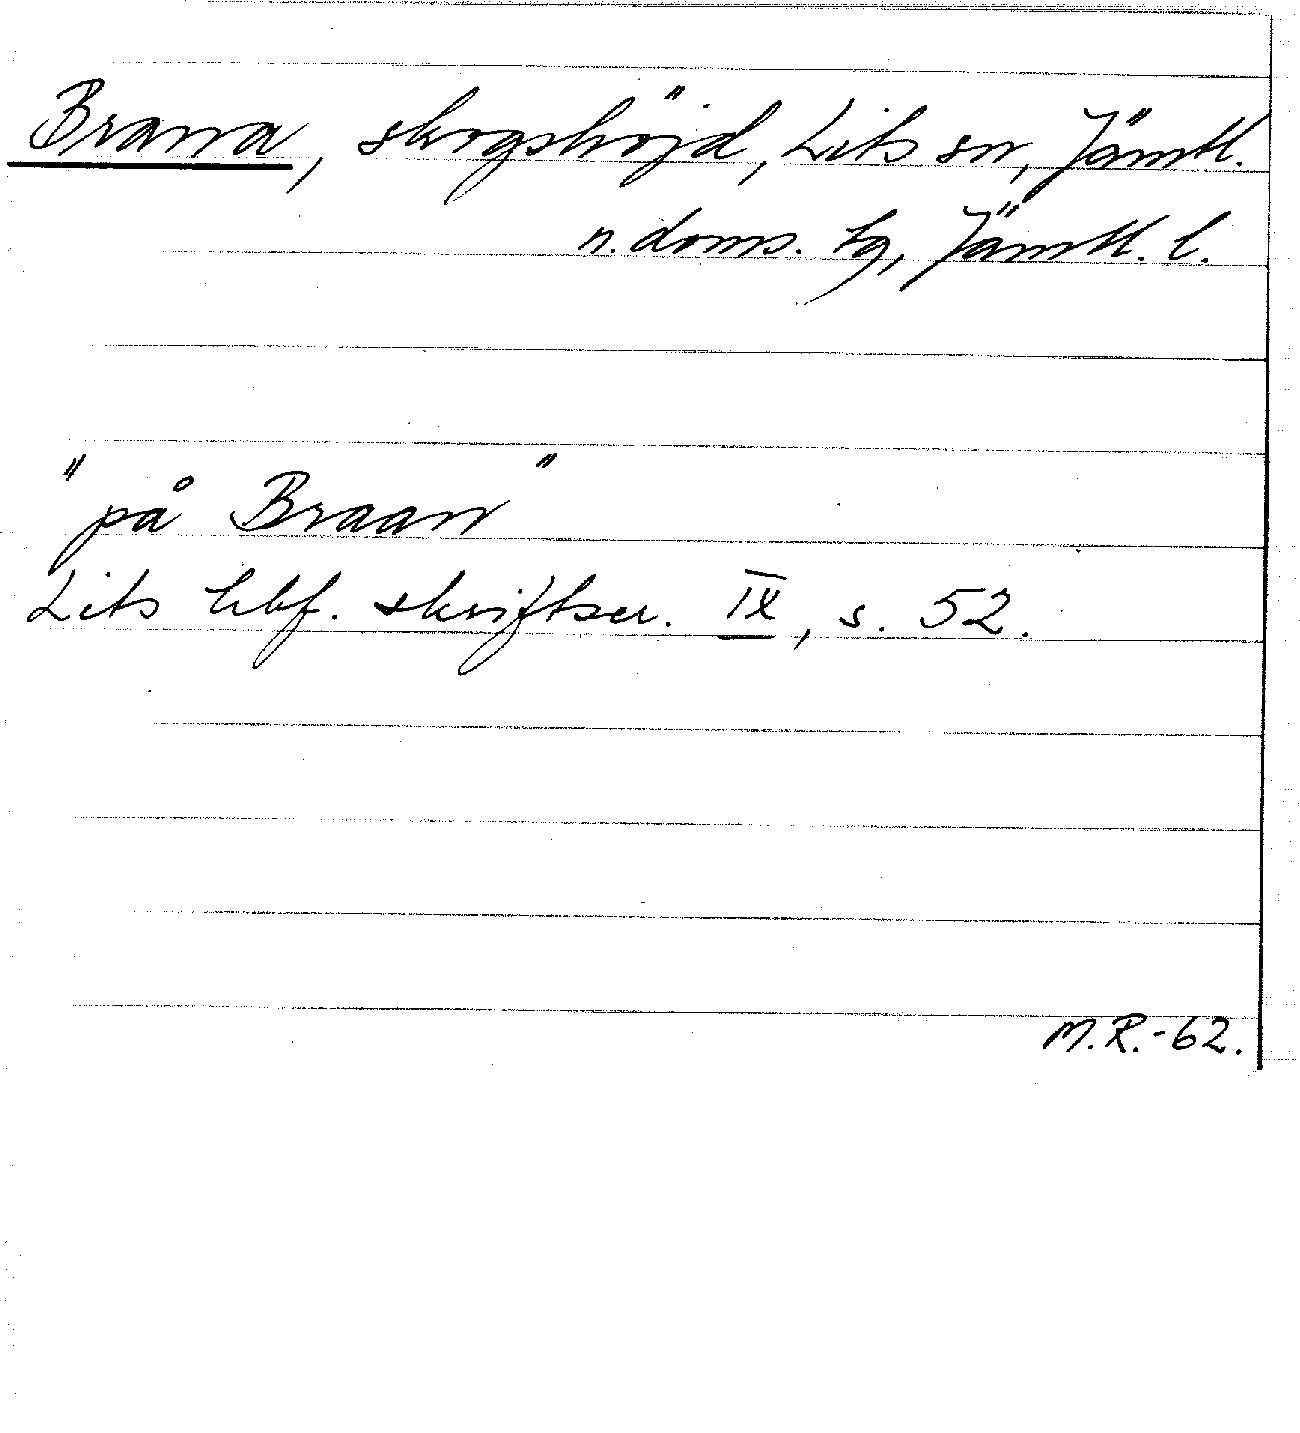 Brana, skogshöjd, Lits sn, Jämtl.
n. doms. tg, Jämtl. l.
"på Braan"
Lits hbf. skriftser. IX, s. 52.
M.R.-62.